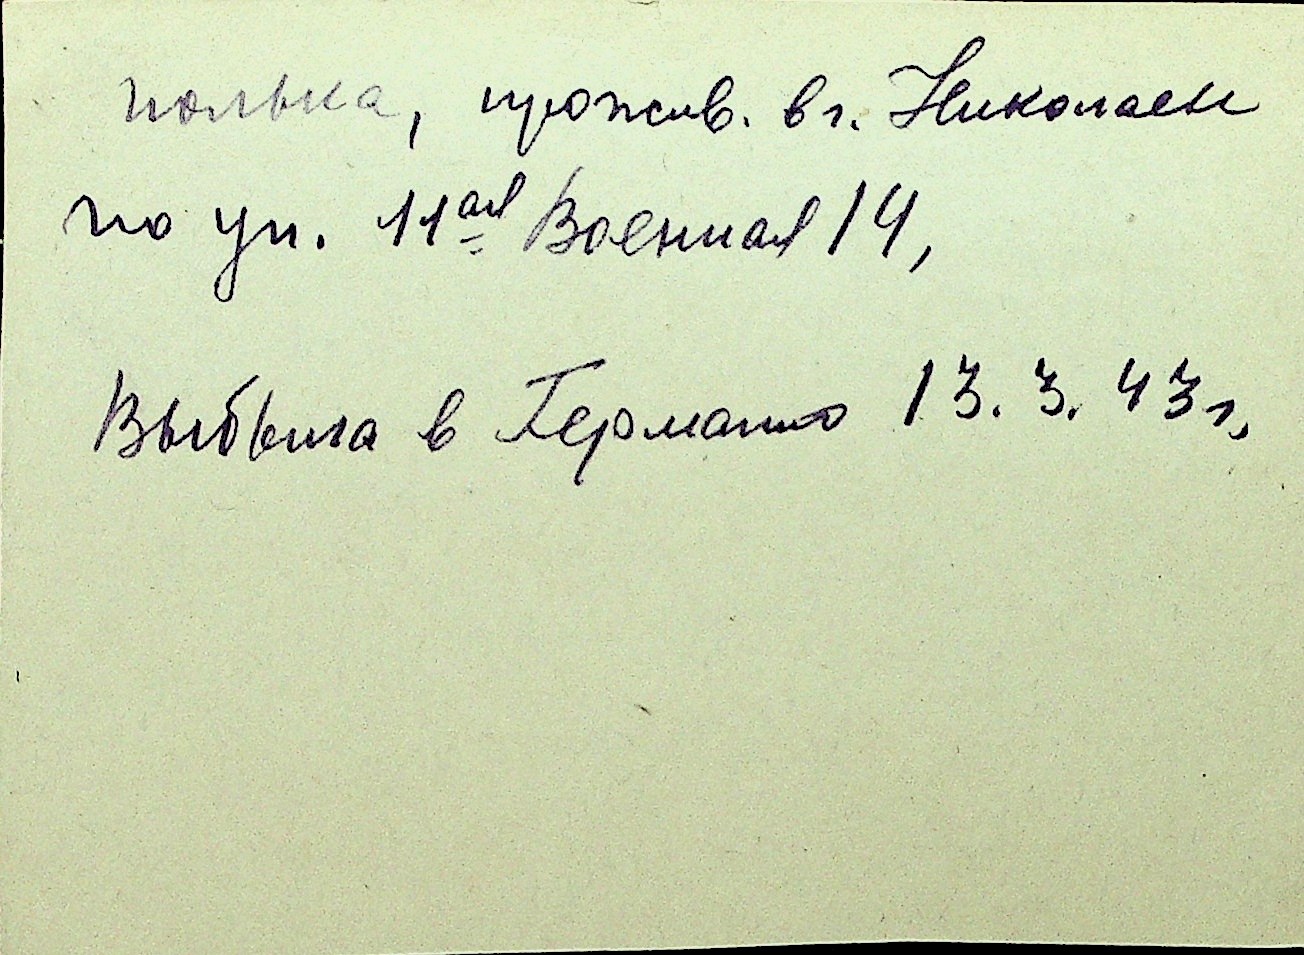 полька, прожив. в г. Николаеве
по ул. 11ая Военная 14,
Выбыла в Германию 13.3.43г.